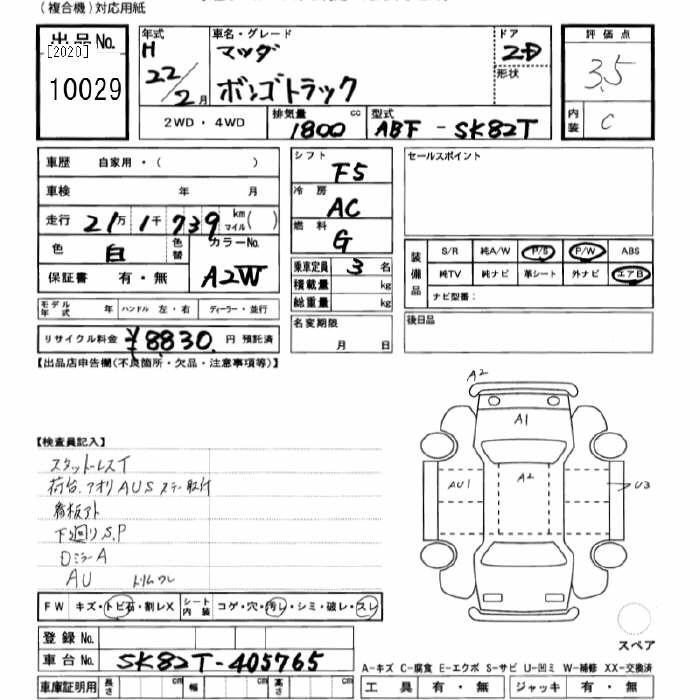 (複合機)対応用紙
出品 No.
[2020]
10029
年式 H 22/2 月
車名・グレード
マツダ
ボンゴトラック
ドア 2D
形状
評価点
3.5
内装 C
2WD・4WD
排気量 1800 cc
型式 ABF-SK82T
車歴 自家用・( )
車検 年 月
走行 21万 1千 739 km マイル( )
色 白 色替 カラーNo. A2W
保証書 有・無
モデル年式 年 ハンドル 左・右 ディーラー・並行
リサイクル料金 ¥8830 円 預託済
シフト F5
冷房 AC
燃料 G
乗車定員 3 名
積載量 kg
総重量 kg
名変期限
月 日
セールスポイント
装備品
S/R 純A/W P/S P/W ABS
純TV 純ナビ 革シート 外ナビ エアB
ナビ型番:
後日品
【出品店申告欄(不良箇所・欠品・注意事項等)】
【検査員記入】
スタットレスT
荷台.アオリ AUS ステー取付
看板アト
下廻り S.P
DミラーA
AU トリムワレ
A2
A1
AU1
A2
U3
FW キズ・トビ石・割レX
シート内装 コゲ・穴・汚レ・シミ・破レ・スレ
登録 No.
車台 No. SK82T-405765
車庫証明用 長さ cm 幅 cm 高さ cm
スペア
A-キズ C-腐食 E-エクボ S-サビ U-凹ミ W-補修 XX-交換済
工具 有・無 ジャッキ 有・無